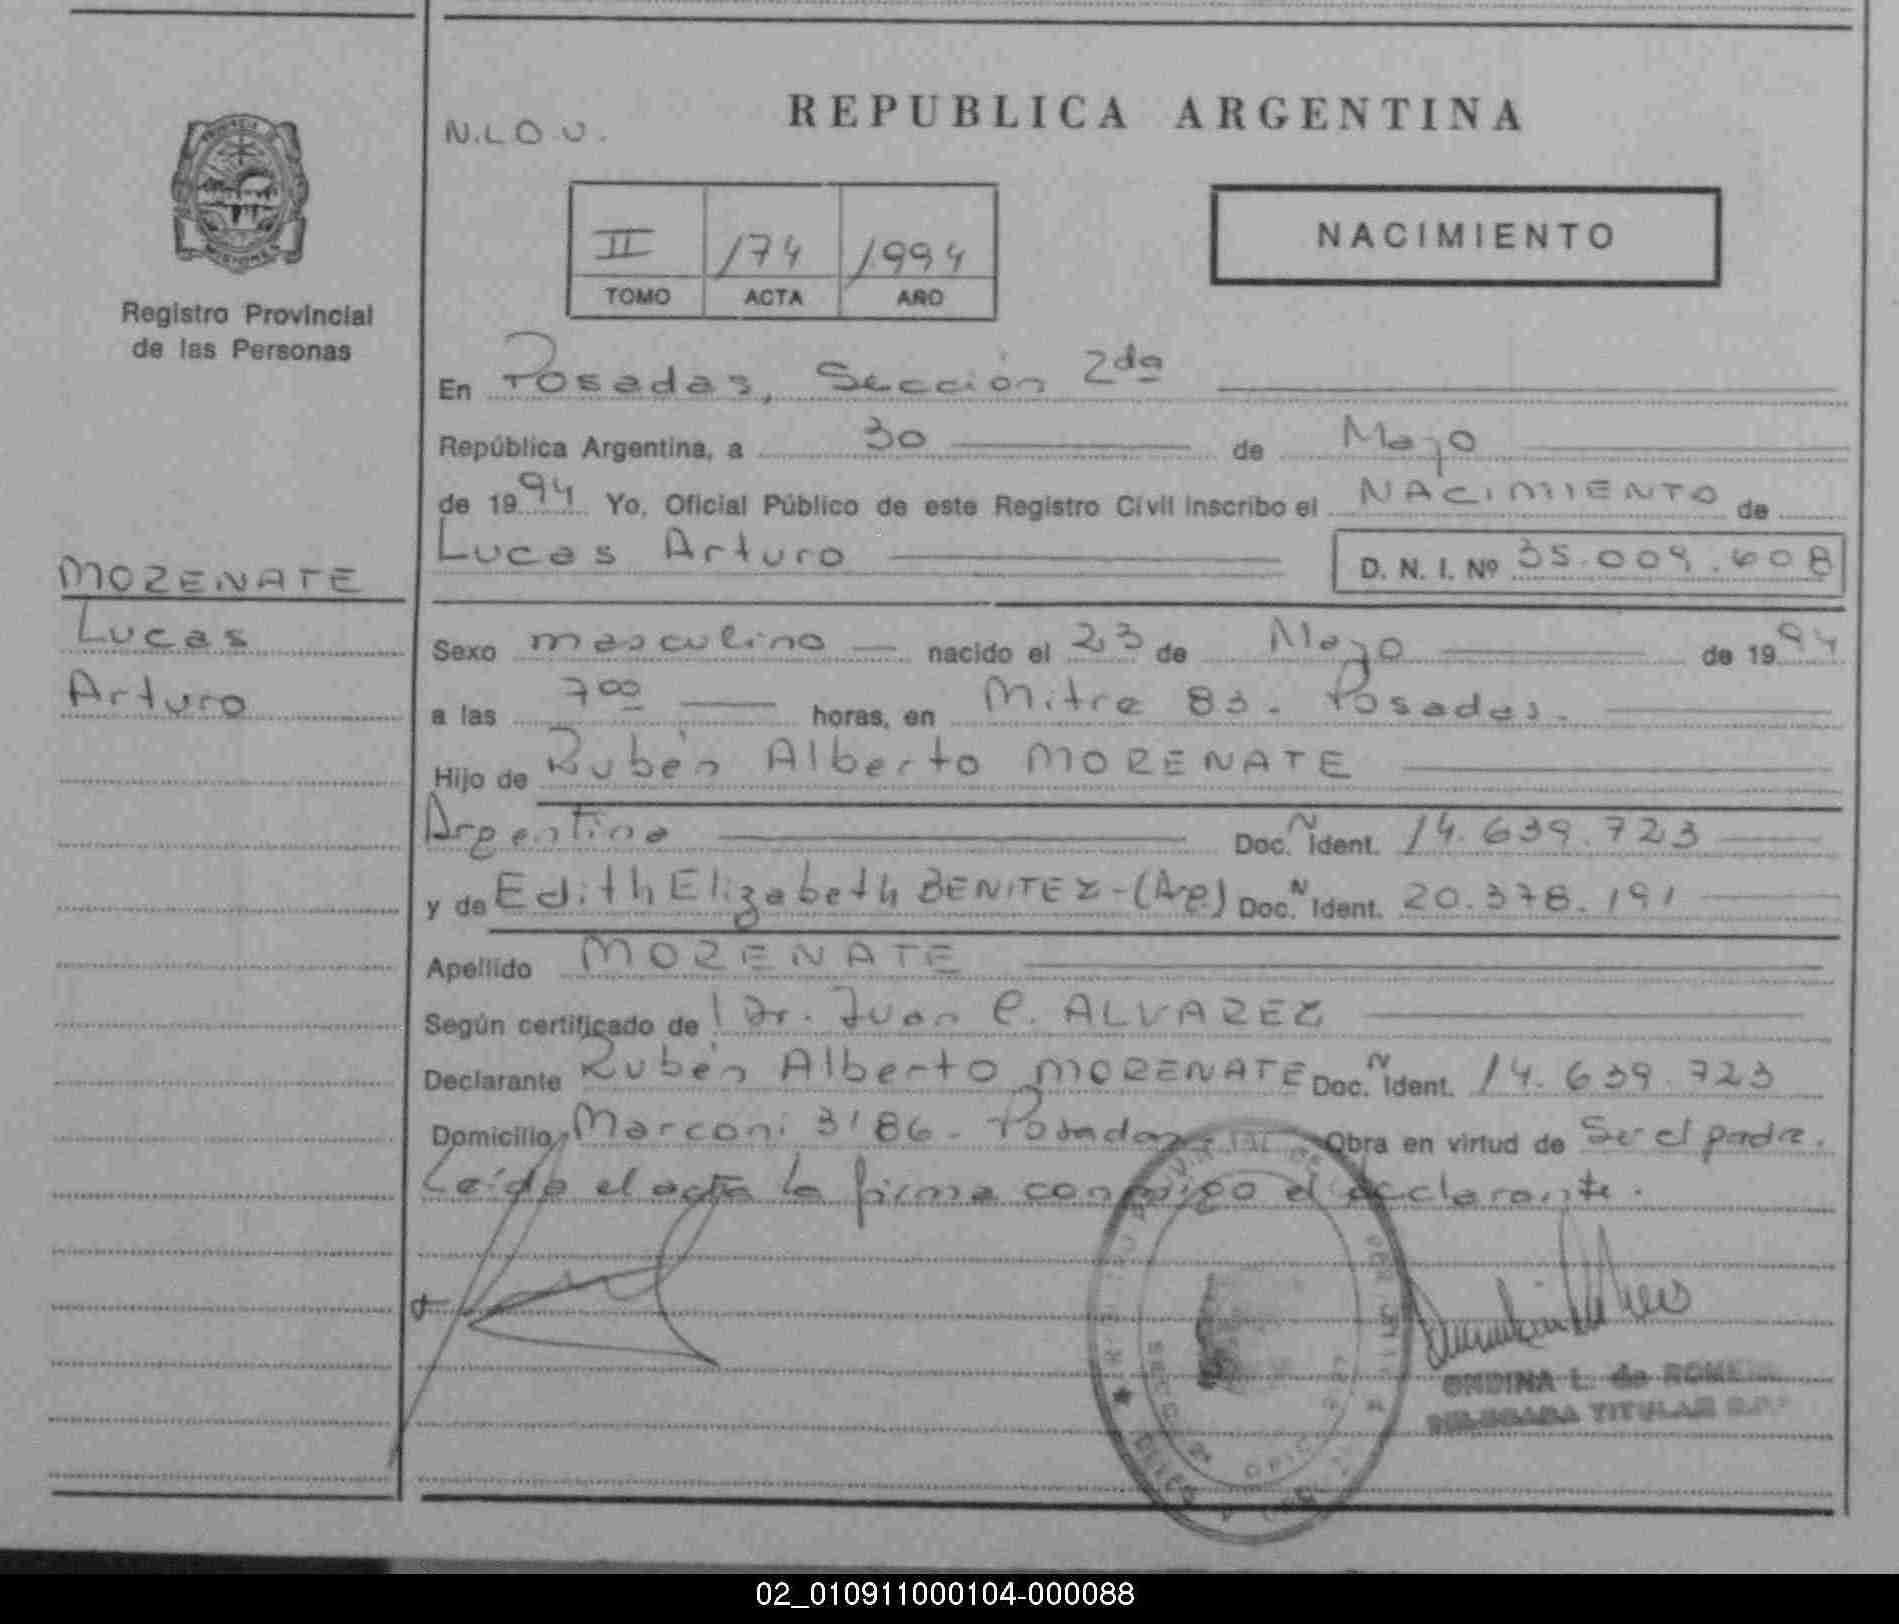 REPUBLICA ARGENTINA
N.L.O.U.
II 174 1994
TOMO ACTA AÑO
NACIMIENTO
Registro Provincial
de las Personas
MORENATE
Lucas
Arturo
En Posadas, Sección 2da
República Argentina, a 30 de Mayo
de 1994 Yo, Oficial Público de este Registro Civil inscribo el NACIMIENTO de
Lucas Arturo D. N. I. Nº 35.009.608
Sexo masculino nacido el 23 de Mayo de 1994
a las 7 00 horas, en Mitre 83. Posadas.
Hijo de Rubén Alberto MORENATE
Argentina Doc. N Ident. 14.639.723
y de Edith Elizabeth BENITEZ-(Arg) Doc. N Ident. 20.378.191
Apellido MORENATE
Según certificado de Dr. Juan C. ALVAREZ
Declarante Rubén Alberto MORENATE Doc. N Ident. 14.639.723
Domicilio Marconi 3186. Posadas Obra en virtud de Ser el padre.
Leída el acta la firma conmigo el declarante.
ONDINA L. de
TITULAR
02_010911000104-000088